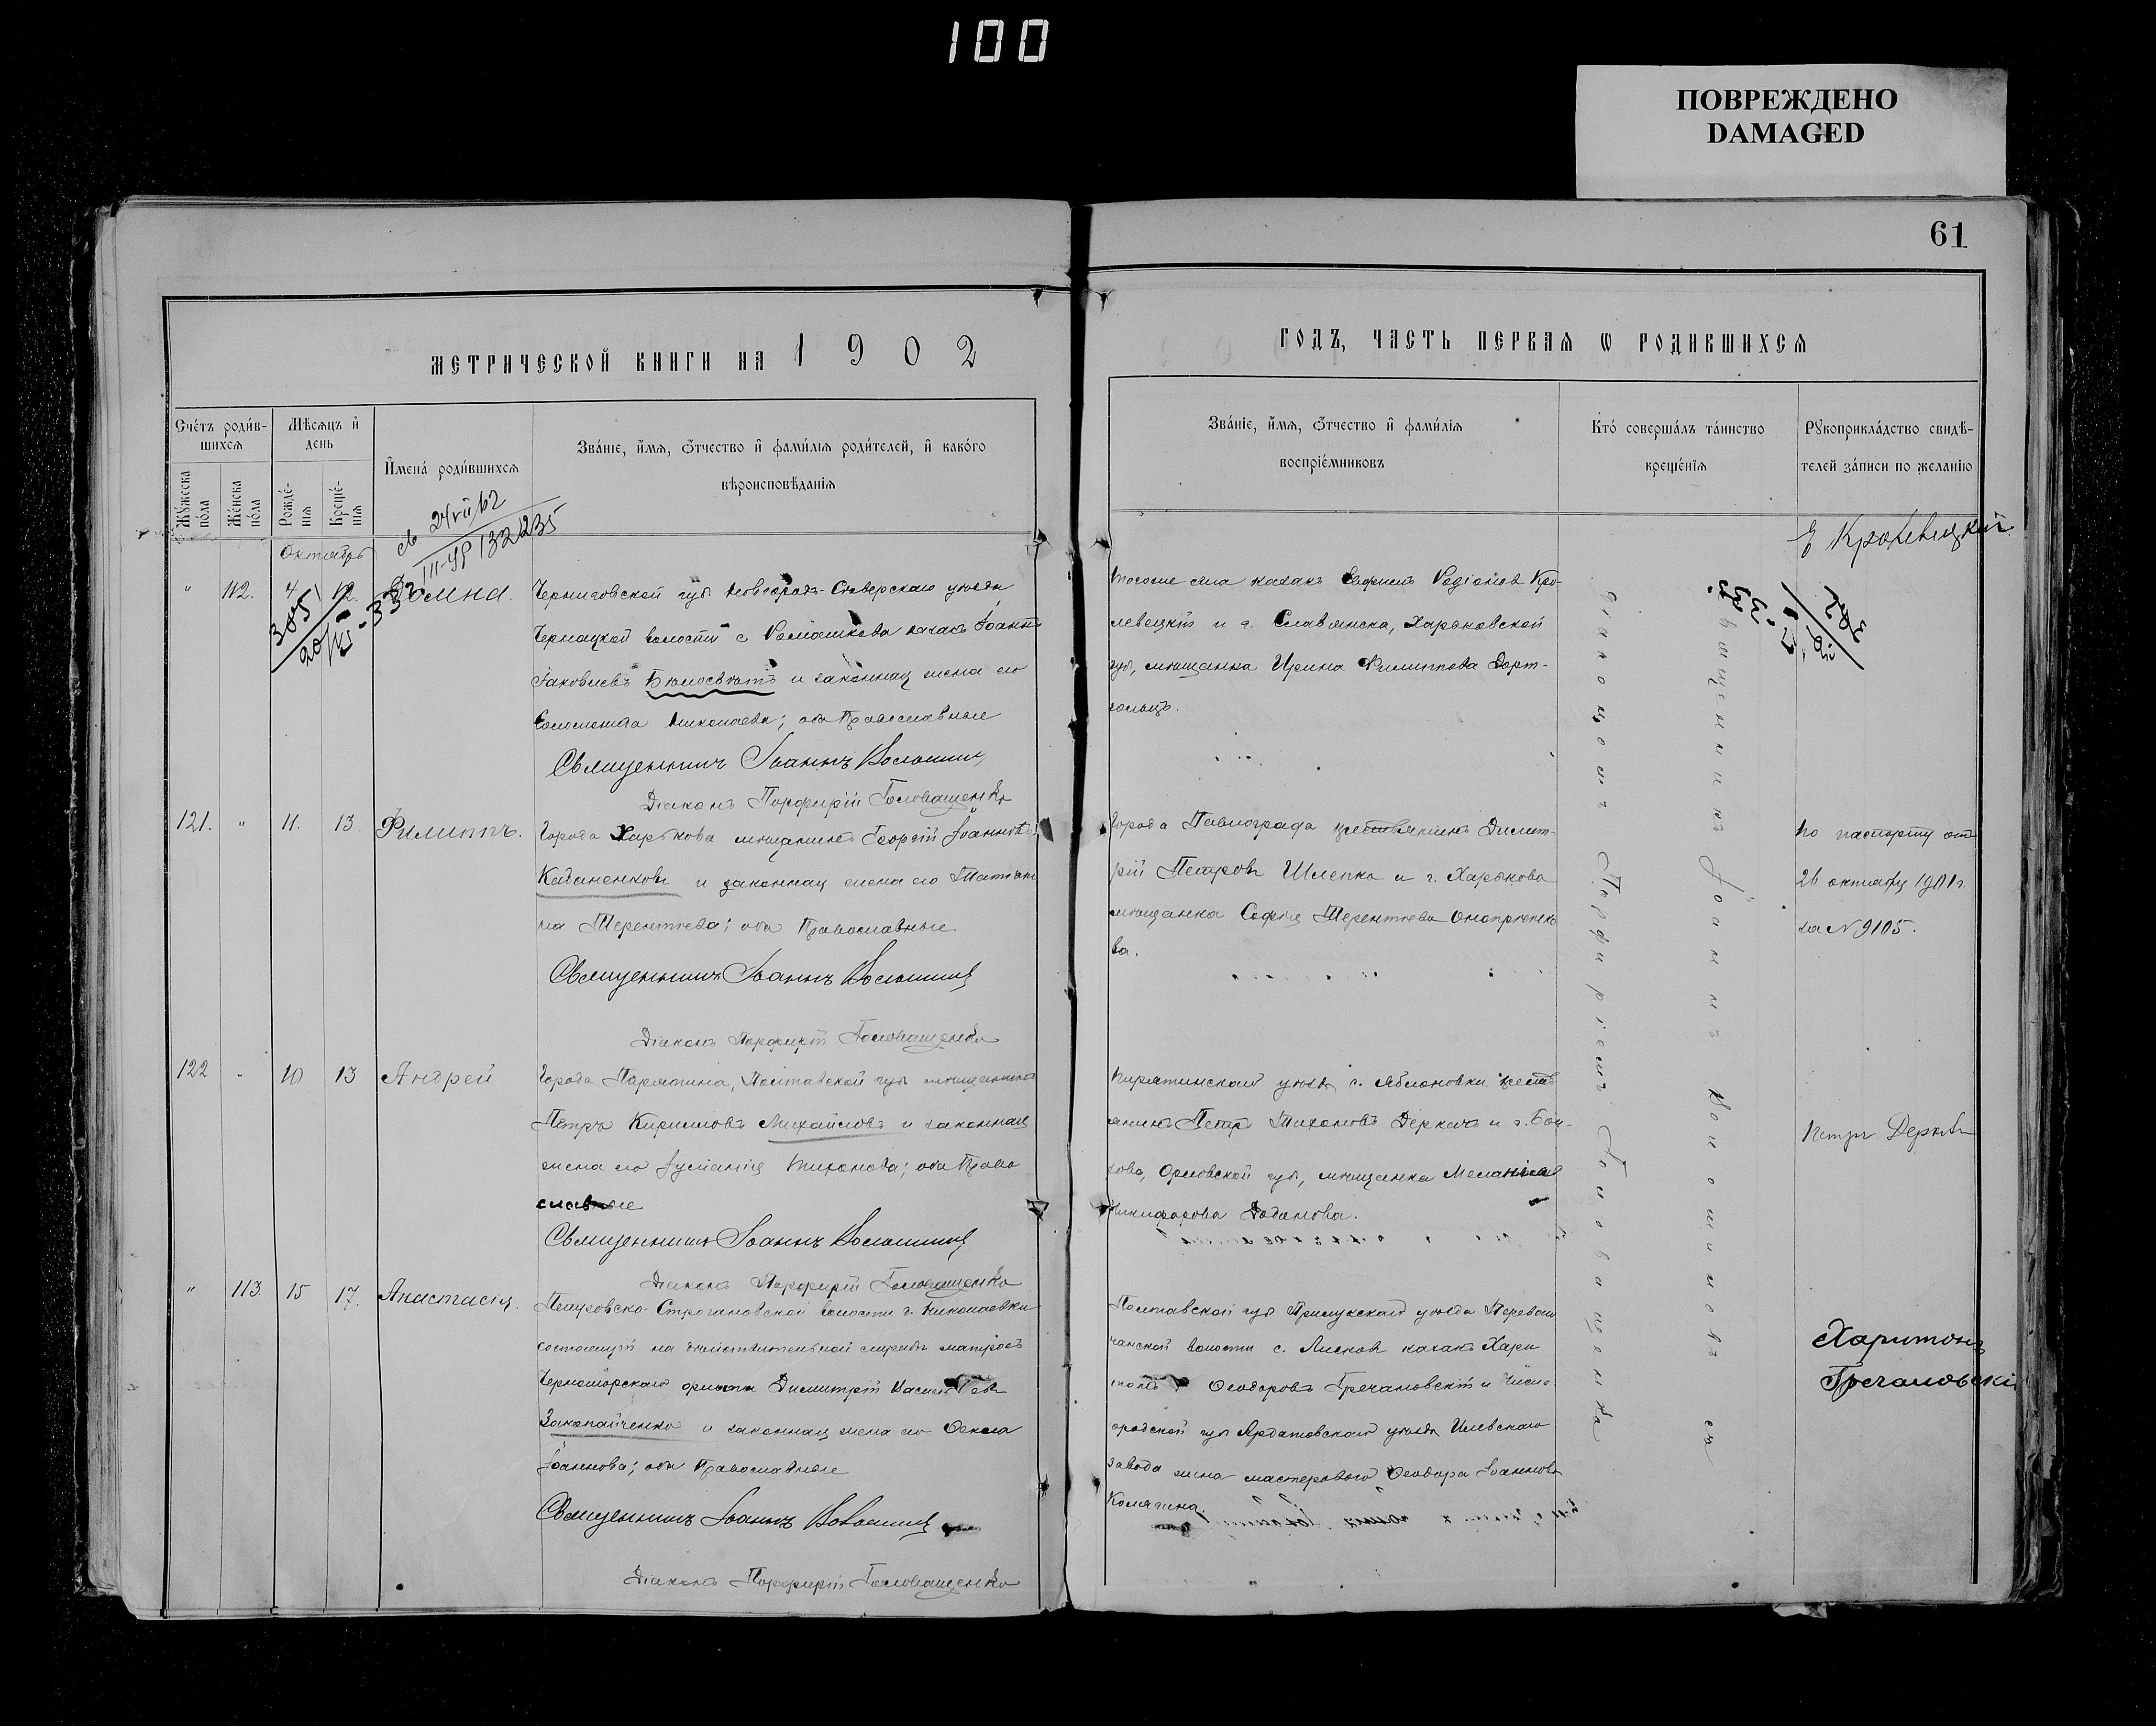 100
ПОВРЕЖДЕНО
DAMAGED
61
МЕТРИЧЕСКОЙ КНИГИ НА 1902
ГОДЪ, ЧАСТЬ ПЕРВАЯ Ѡ РОДИВШИХСЯ
Счетъ родив-
шихся
Мужеска
пола
Женска
пола
Мѣсяцъ и
день
Рожде-
нія
Креще-
нія
Имена родившихся
Званіе, имя, отчество и фамилія родителей, и какого
вѣроисповѣданія
Званіе, имя, отчество и фамилія
воспріемниковъ
Кто совершалъ таинство
крещенія
Рукоприкладство свидѣ-
телей записи по желанію
Октябрь
" 112. 4 Домна.
Черниговской губ. Новгородъ-Сѣверскаго уѣзда
волости с. Ромашкова казакъ Іоаннъ
Іаковлевъ Бѣлосвѣтъ и законная жена его
Николаева; оба Православные
Священникъ Іоаннъ Волошинъ
Діаконъ Порфирій Головащенко
того же села казакъ Родіоновъ Кро-
левецкій и г. Славянска, Харьковской
губ., мѣщанка Ирина Филиппова
Е Кролевецкій
121. " 11. 13. Филиппъ.
Города Харькова мѣщанинъ Георгій Іоанновъ
и законная жена его Татья-
на Терентьева; оба Православные
Священникъ Іоаннъ Волошинъ
Діаконъ Порфирій Головащенко
Города Павлограда Димит-
рій Петровъ Шлепка и г. Харькова
мѣщанка Софія Терентьева
ва.
По паспорту отъ
26 октября 1901 г.
за № 9105.
122 " 10 13 Андрей
Города Пирятина, Полтавской губ. мѣщанинъ
Петръ Кирилловъ Михайловъ и законная
жена его Іуліанія Тихонова; оба Право
славные
Священникъ Іоаннъ Волошинъ
Діаконъ Порфирій Головащенко
Пирятинскаго уѣзда с. Яблоновки крестья-
янинъ Петръ Тихоновъ Деркачъ и г. Бол-
хова, Орловской губ., мѣщанка Меланія
Никифорова
Петръ Деркачъ
" 113. 15 17. Анастасія.
Петровско-Строгановской волости д. Николаевки
состоящій на дѣйствительной службѣ матросъ
Черноморскаго флота Димитрій Васильевъ
Закопайченко и законная жена его Ѳекла
Іоаннова; оба Православные
Священникъ Іоаннъ Волошинъ
Діаконъ Порфирій Головащенко
Полтавской губ. Прилукскаго уѣзда Перевол
чанской волости с. казакъ Хари
тонъ Ѳеодоровъ Гречановскій и Ниже-
ородской губ. Ардатовскаго уѣзда Илевскаго
завода жена мастерового Ѳеодора Іоаннова
Харитонъ
Гречановскій
Священникъ Іоаннъ Волошиновъ съ
діакономъ Порфиріемъ Головащенко